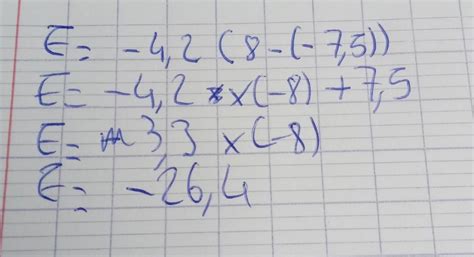 E = -4,2 (8-(-7,5))
E = -4,2 x(-8) + 7,5
E = 3,3 x(-8)
E = -26,4